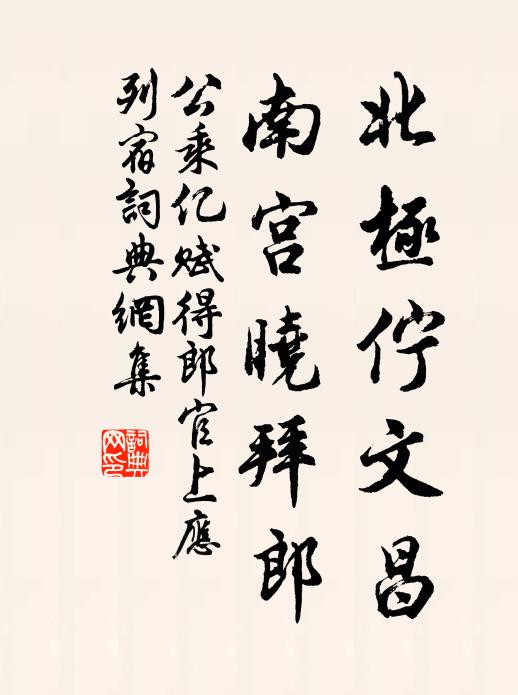 北極佇文昌
南宮曉拜郎
公乘亿赋得郎官上應
列宿詞典網集
詞典網印